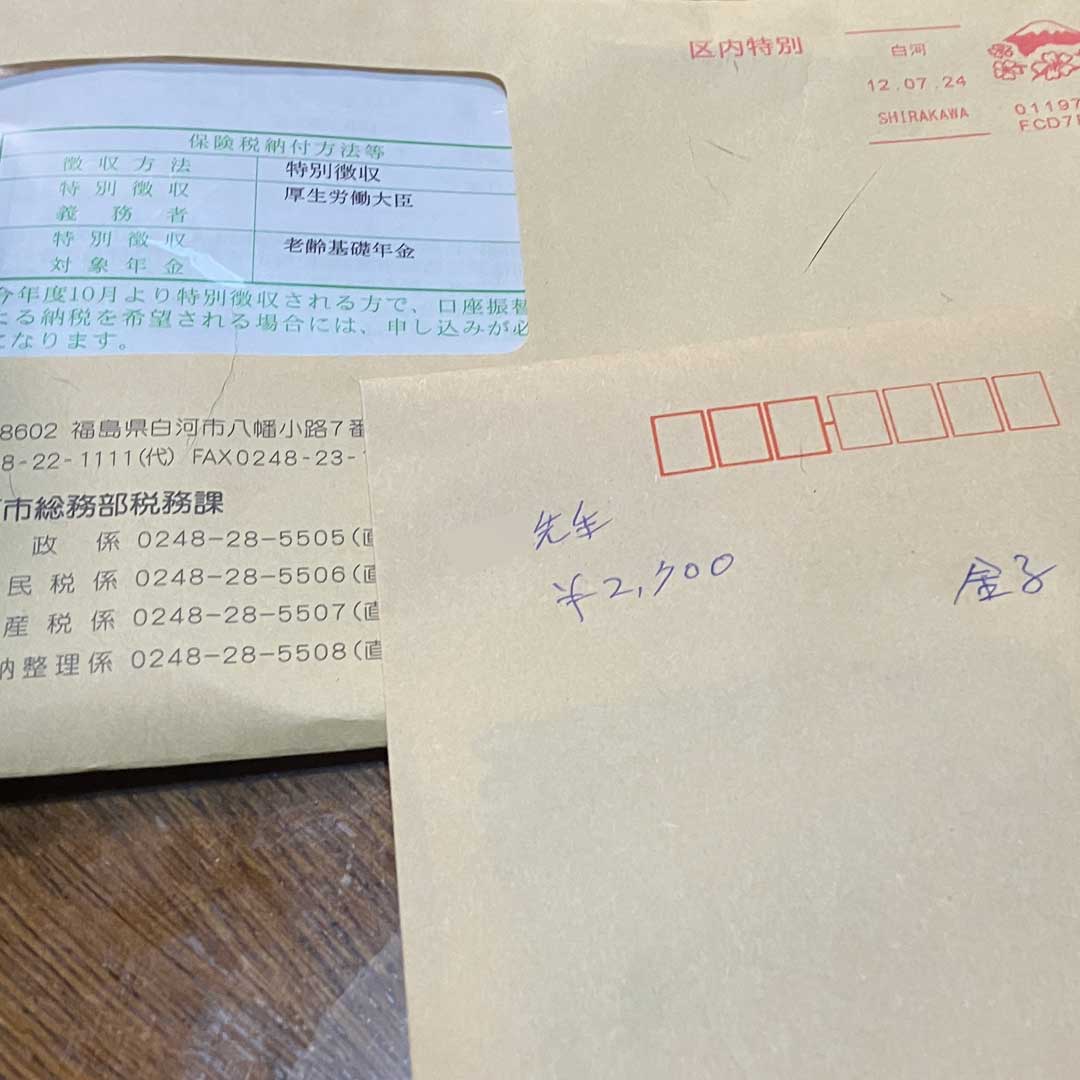 区内特別
白河
12.07.24
SHIRAKAWA
01197
FCD7
保険税納付方法等
徴収方法 特別徴収
特別徴収義務者 厚生労働大臣
特別徴収対象年金 老齢基礎年金
今年度10月より特別徴収される方で、口座振替
よる納税を希望される場合には、申し込みが必
になります。
8602 福島県白河市八幡小路7番
8-22-1111(代) FAX0248-23-
市総務部税務課
政係 0248-28-5505(直
民税係 0248-28-5506(直
産税係 0248-28-5507(直
納整理係 0248-28-5508(直
先生
¥2,700
金子